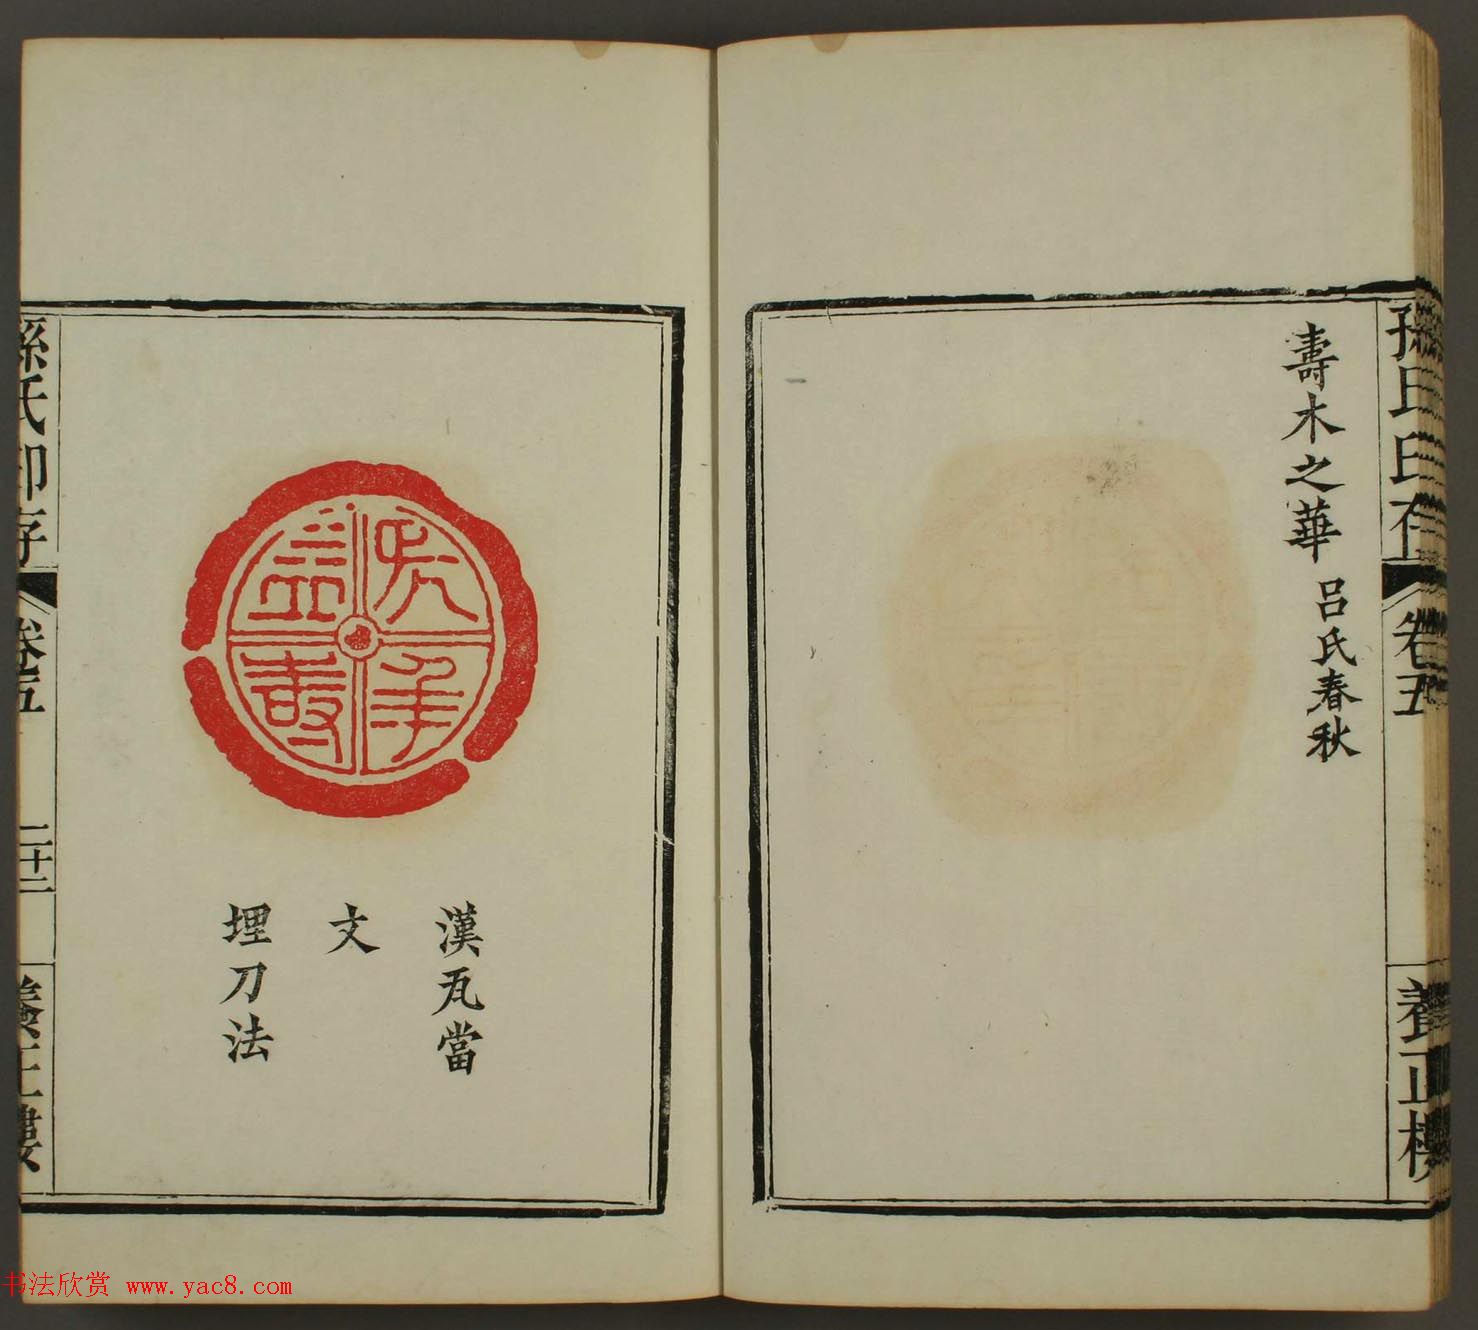 壽木之華 呂氏春秋
孫氏印存
卷五
養正樓
延年益壽
漢瓦當
文
埋刀法
孫氏印存
卷五
二十二
養正樓
书法欣赏 www.yac8.com